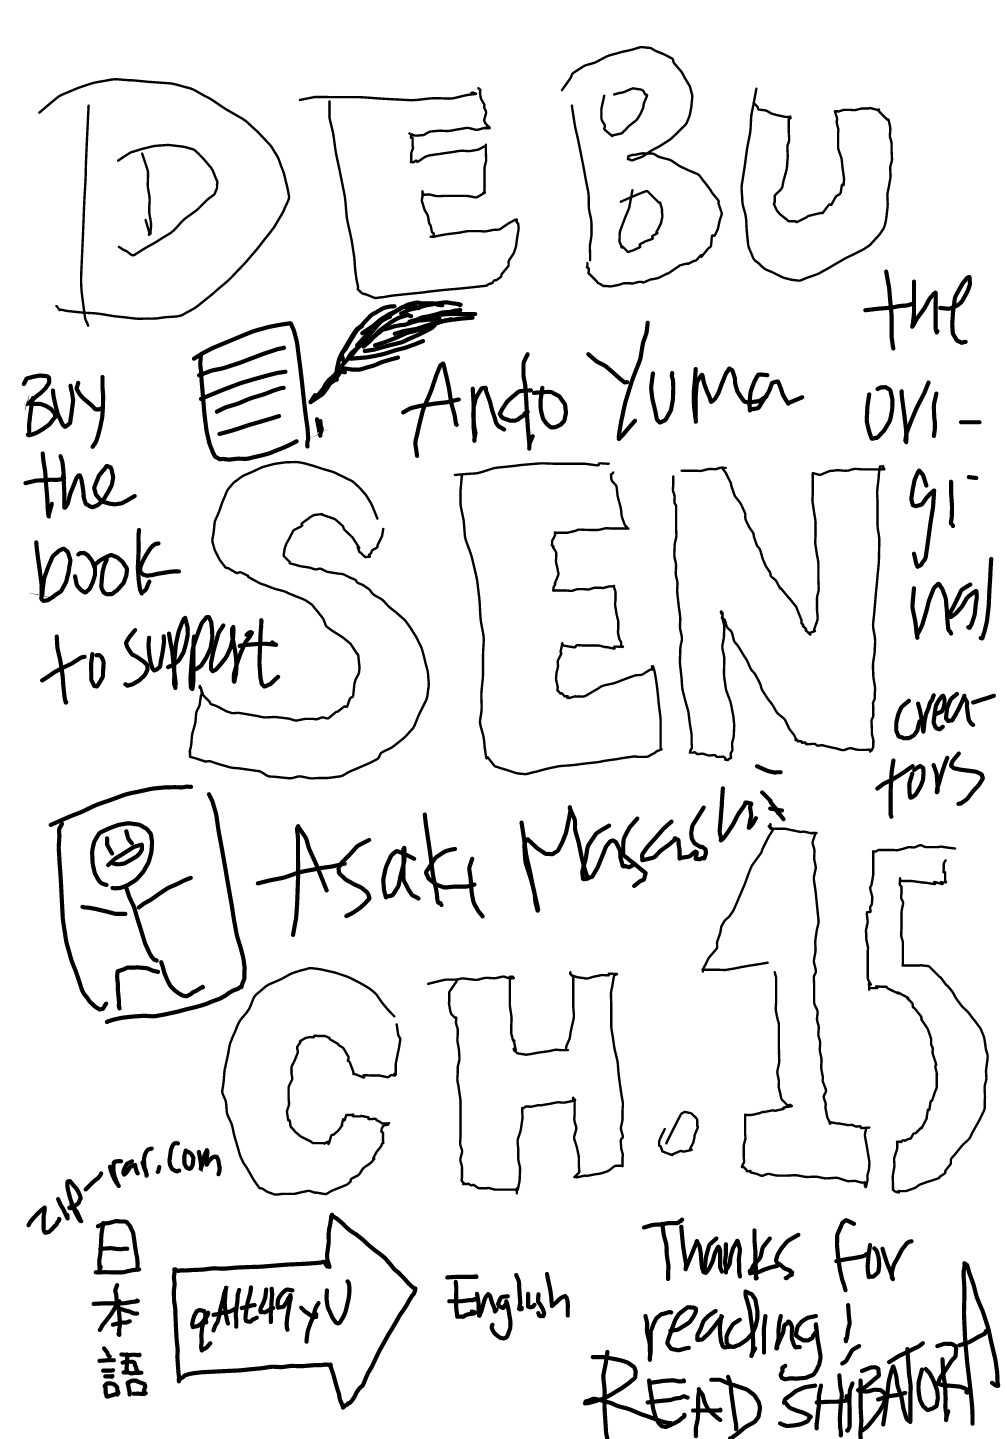 DEBU
Ando Yuma
the
ori-
gi-
nal
crea-
tors
Buy
the
book
to support
SEN
Asaki Masashi
CH.15
zip-rar.com
日
本
語
qAlt49yU
English
Thanks for
reading!
READ SHIBATORA